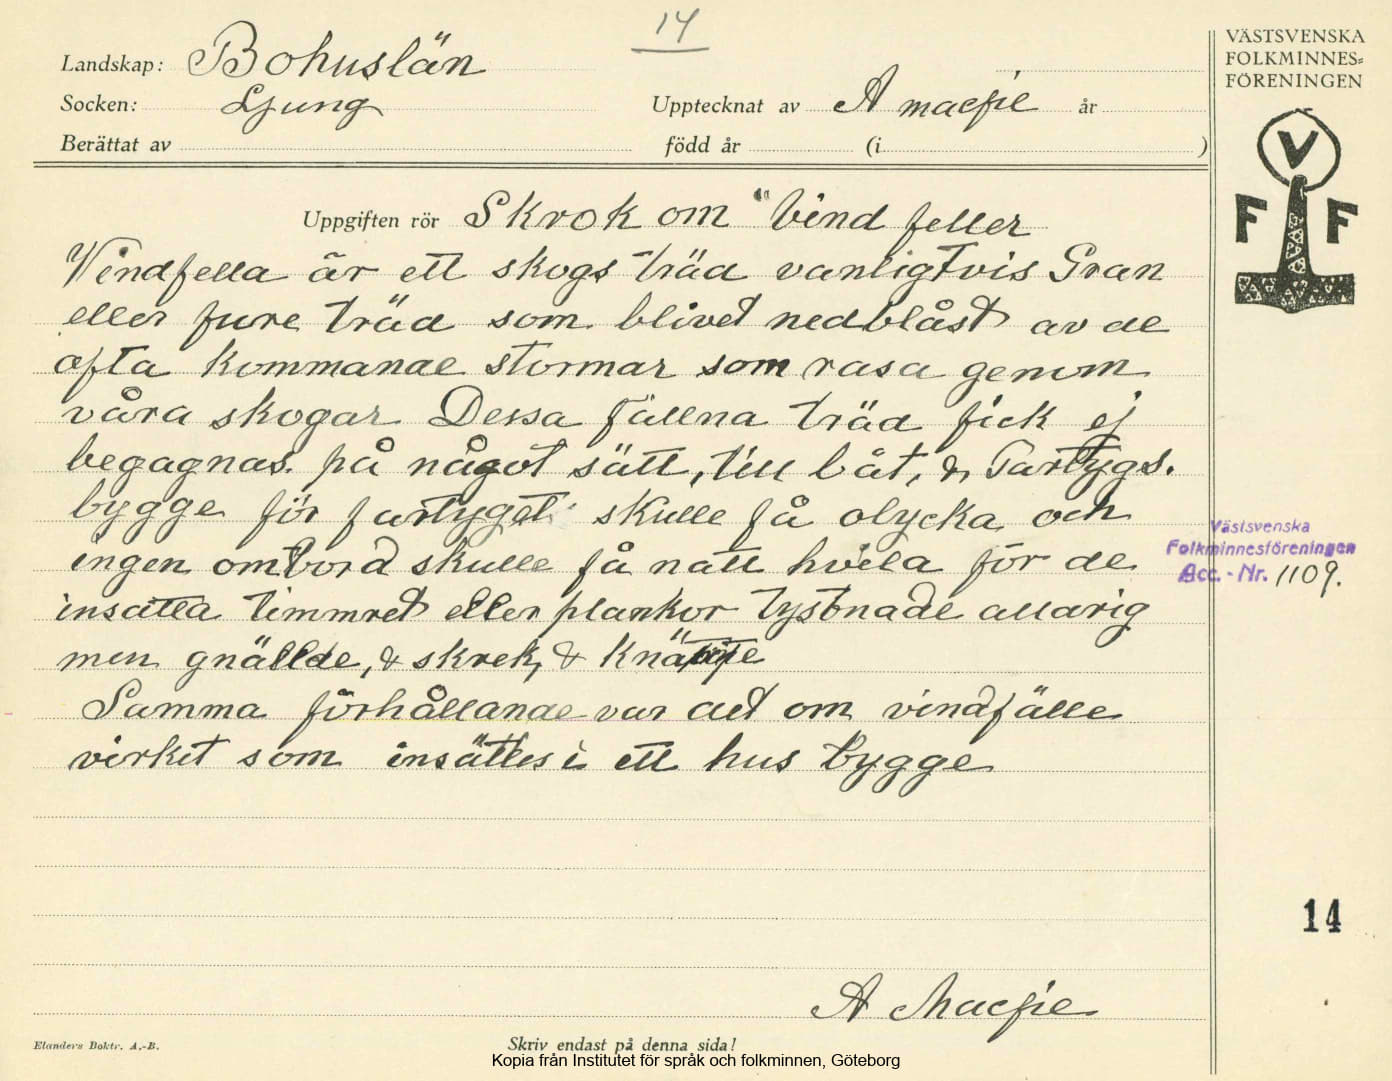 14
VÄSTSVENSKA
FOLKMINNES=
FÖRENINGEN
Landskap: Bohuslän
Socken: Ljung
Upptecknat av A macfie år
Berättat av
född år (i )
V
F F
Uppgiften rör Skrok om "Vind feller
Vindfella är ett skogs träd vanligtvis Gran
eller fure träd som blivet nedblåst av de
ofta kommande stormar som rasa genom
våra skogar Dessa fällna träd fick ej
begagnas på något sätt, till båt, & Fartygs.
bygge för fartyget skulle få olycka och
ingen ombord skulle få natt hvila för de
insatta timmret eller plankor tystnade alldrig
men gnällde, & skrek, & knäppte
Samma förhållande var det om vindfälle
virket som insättes i ett hus bygge
Västsvenska
Folkminnesföreningen
Acc. - Nr. 1109.
14
A Macfie
Elanders Boktr. A.-B.
Skriv endast på denna sida!
Kopia från Institutet för språk och folkminnen, Göteborg